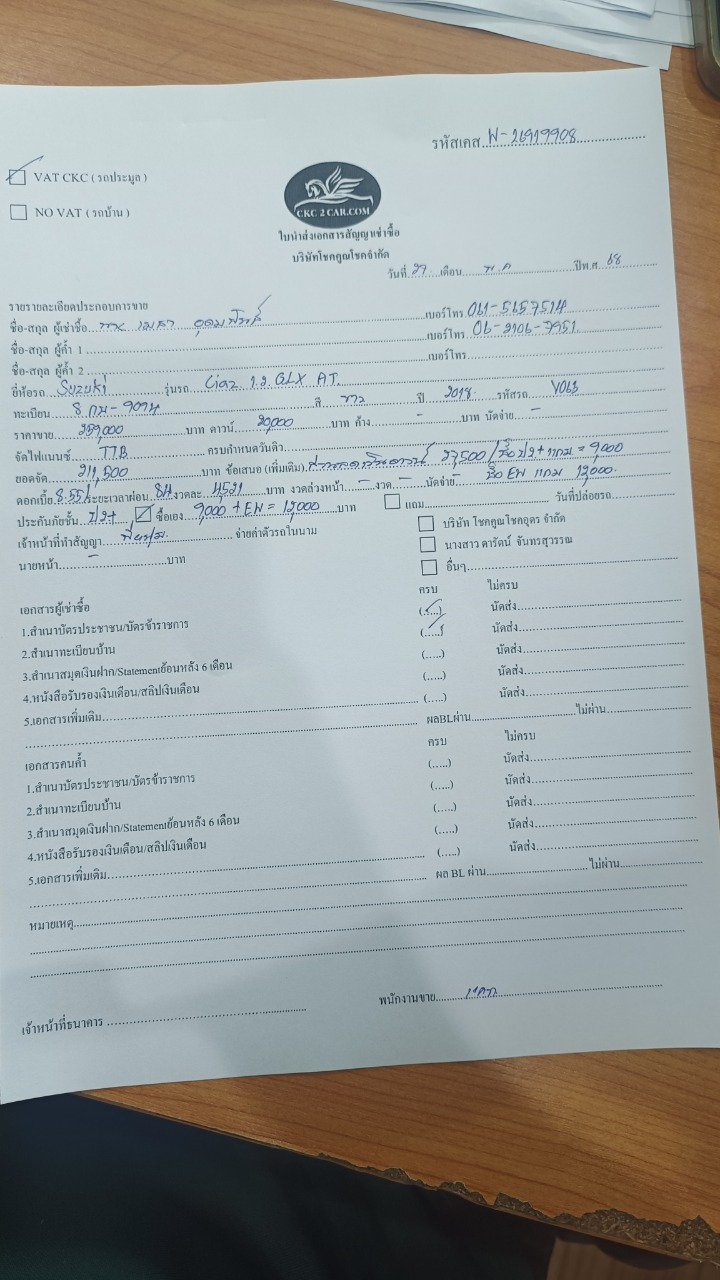 รหัสเคส N-26919908
VAT CKC ( รถประมูล )
NO VAT ( รถบ้าน )
CKC 2 CAR.COM
ใบนำส่งเอกสารสัญญาเช่าซื้อ
บริษัทโชคคูณโชคจำกัด
วันที่ 27 เดือน พ.ค ปีพ.ศ. 68
รายรายละเอียดประกอบการขาย
ชื่อ-สกุล ผู้เช่าซื้อ เบอร์โทร 061-5657514
ชื่อ-สกุล ผู้ค้ำ 1 เบอร์โทร 06-2106-7951
ชื่อ-สกุล ผู้ค้ำ 2 เบอร์โทร
ยี่ห้อรถ Suzuki รุ่นรถ Ciaz 1.2 GLX AT.
ทะเบียน สี ขาว ปี 2018 รหัสรถ V063
ราคาขาย 259,000 บาท ดาวน์ 20,000 บาท ค้าง - บาท นัดจ่าย -
จัดไฟแนนซ์ TTB ครบกำหนดวันดิว
ยอดจัด 211,500 บาท ข้อเสนอ (เพิ่มเติม) ส่วนลดเงินดาวน์ 27,500 / ซื้อ ป2+ แถม = 9,000
ดอกเบี้ย 8.55% ระยะเวลาผ่อน 84 งวดละ 4,521 บาท งวดล่วงหน้า - งวด - นัดจ่าย - ซื้อ EW แถม 12,000
ประกันภัยชั้น ป2+ ซื้อเอง 9,000 + EW = 12,000 บาท แถม วันที่ปล่อยรถ
เจ้าหน้าที่ทำสัญญา จ่ายค่าตัวรถในนาม บริษัท โชคคูณโชคอุดร จำกัด
นายหน้า - บาท นางสาว ดารัตน์ จันทรสุวรรณ
อื่นๆ
เอกสารผู้เช่าซื้อ ครบ ไม่ครบ
1.สำเนาบัตรประชาชน/บัตรข้าราชการ (.....) นัดส่ง
2.สำเนาทะเบียนบ้าน (.....) นัดส่ง
3.สำเนาสมุดเงินฝาก/Statementย้อนหลัง 6 เดือน (.....) นัดส่ง
4.หนังสือรับรองเงินเดือน/สลิปเงินเดือน (.....) นัดส่ง
5.เอกสารเพิ่มเติม (.....) นัดส่ง
ผลBLผ่าน ไม่ผ่าน
เอกสารคนค้ำ ครบ ไม่ครบ
1.สำเนาบัตรประชาชน/บัตรข้าราชการ (.....) นัดส่ง
2.สำเนาทะเบียนบ้าน (.....) นัดส่ง
3.สำเนาสมุดเงินฝาก/Statementย้อนหลัง 6 เดือน (.....) นัดส่ง
4.หนังสือรับรองเงินเดือน/สลิปเงินเดือน (.....) นัดส่ง
5.เอกสารเพิ่มเติม (.....) นัดส่ง
ผล BL ผ่าน ไม่ผ่าน
หมายเหตุ
เจ้าหน้าที่ธนาคาร พนักงานขาย